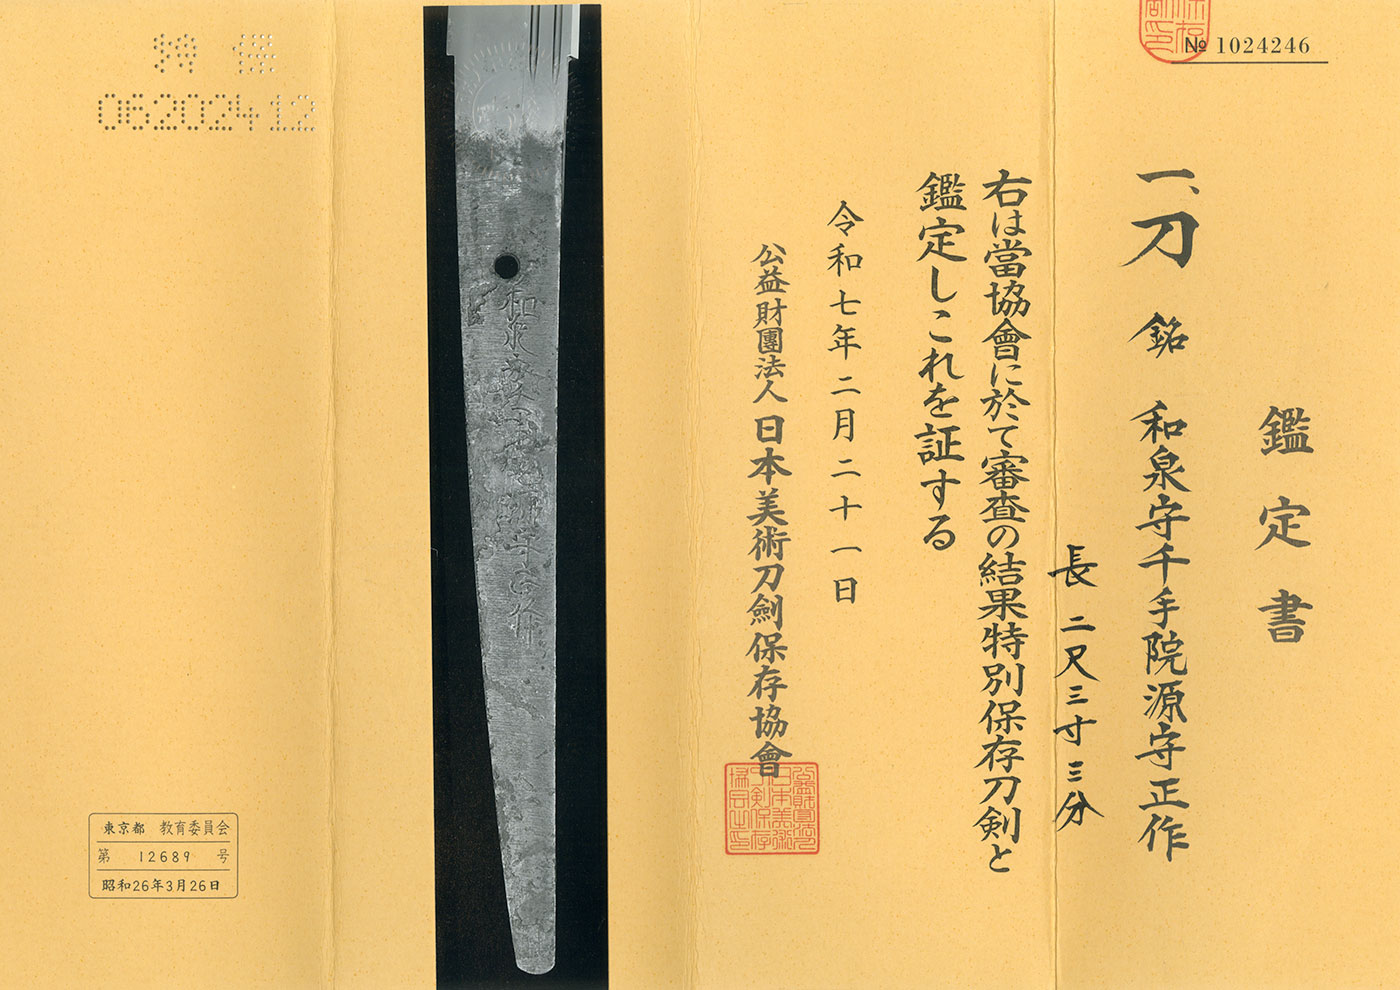 № 1024246
鑑定書
一、刀 銘 和泉守千手院源守正作
長 二尺三寸三分
右は當協會に於て審査の結果特別保存刀剣と
鑑定しこれを証する
令和七年二月二十一日
公益財團法人 日本美術刀劍保存協會
和泉守千手院源守正作
特保
06202412
東京都 教育委員会
第 12689 号
昭和26年3月26日